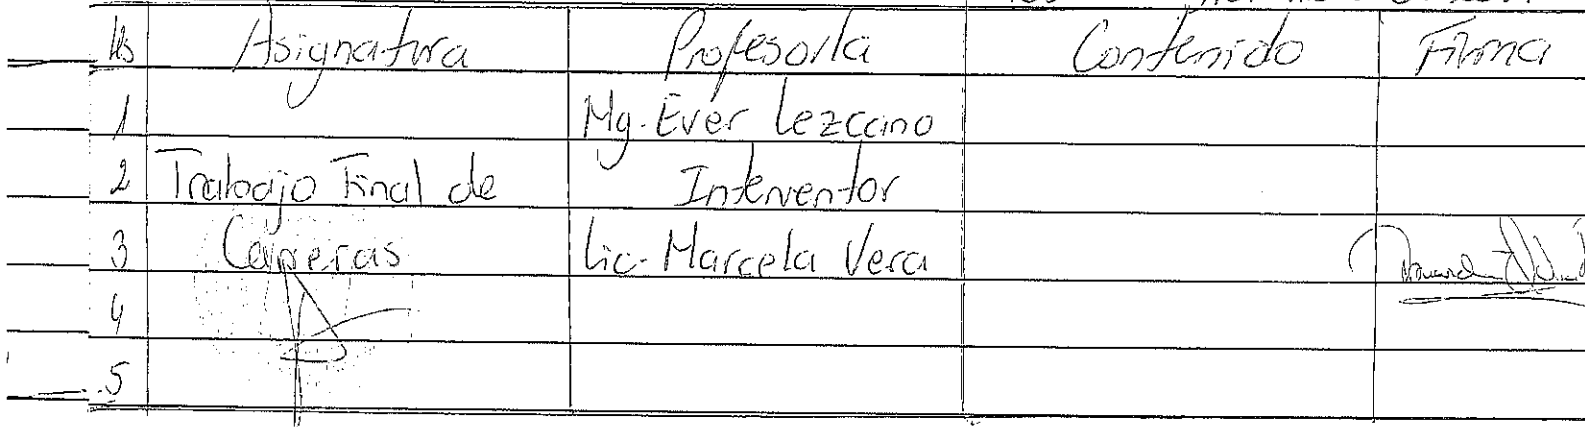 Hs Asignatura Profesor/a Contenido Firma
1 Mg. Ever Lezcano
2 Trabajo Final de Interventor
3 Carreras Lic. Marcela Vera
4
5